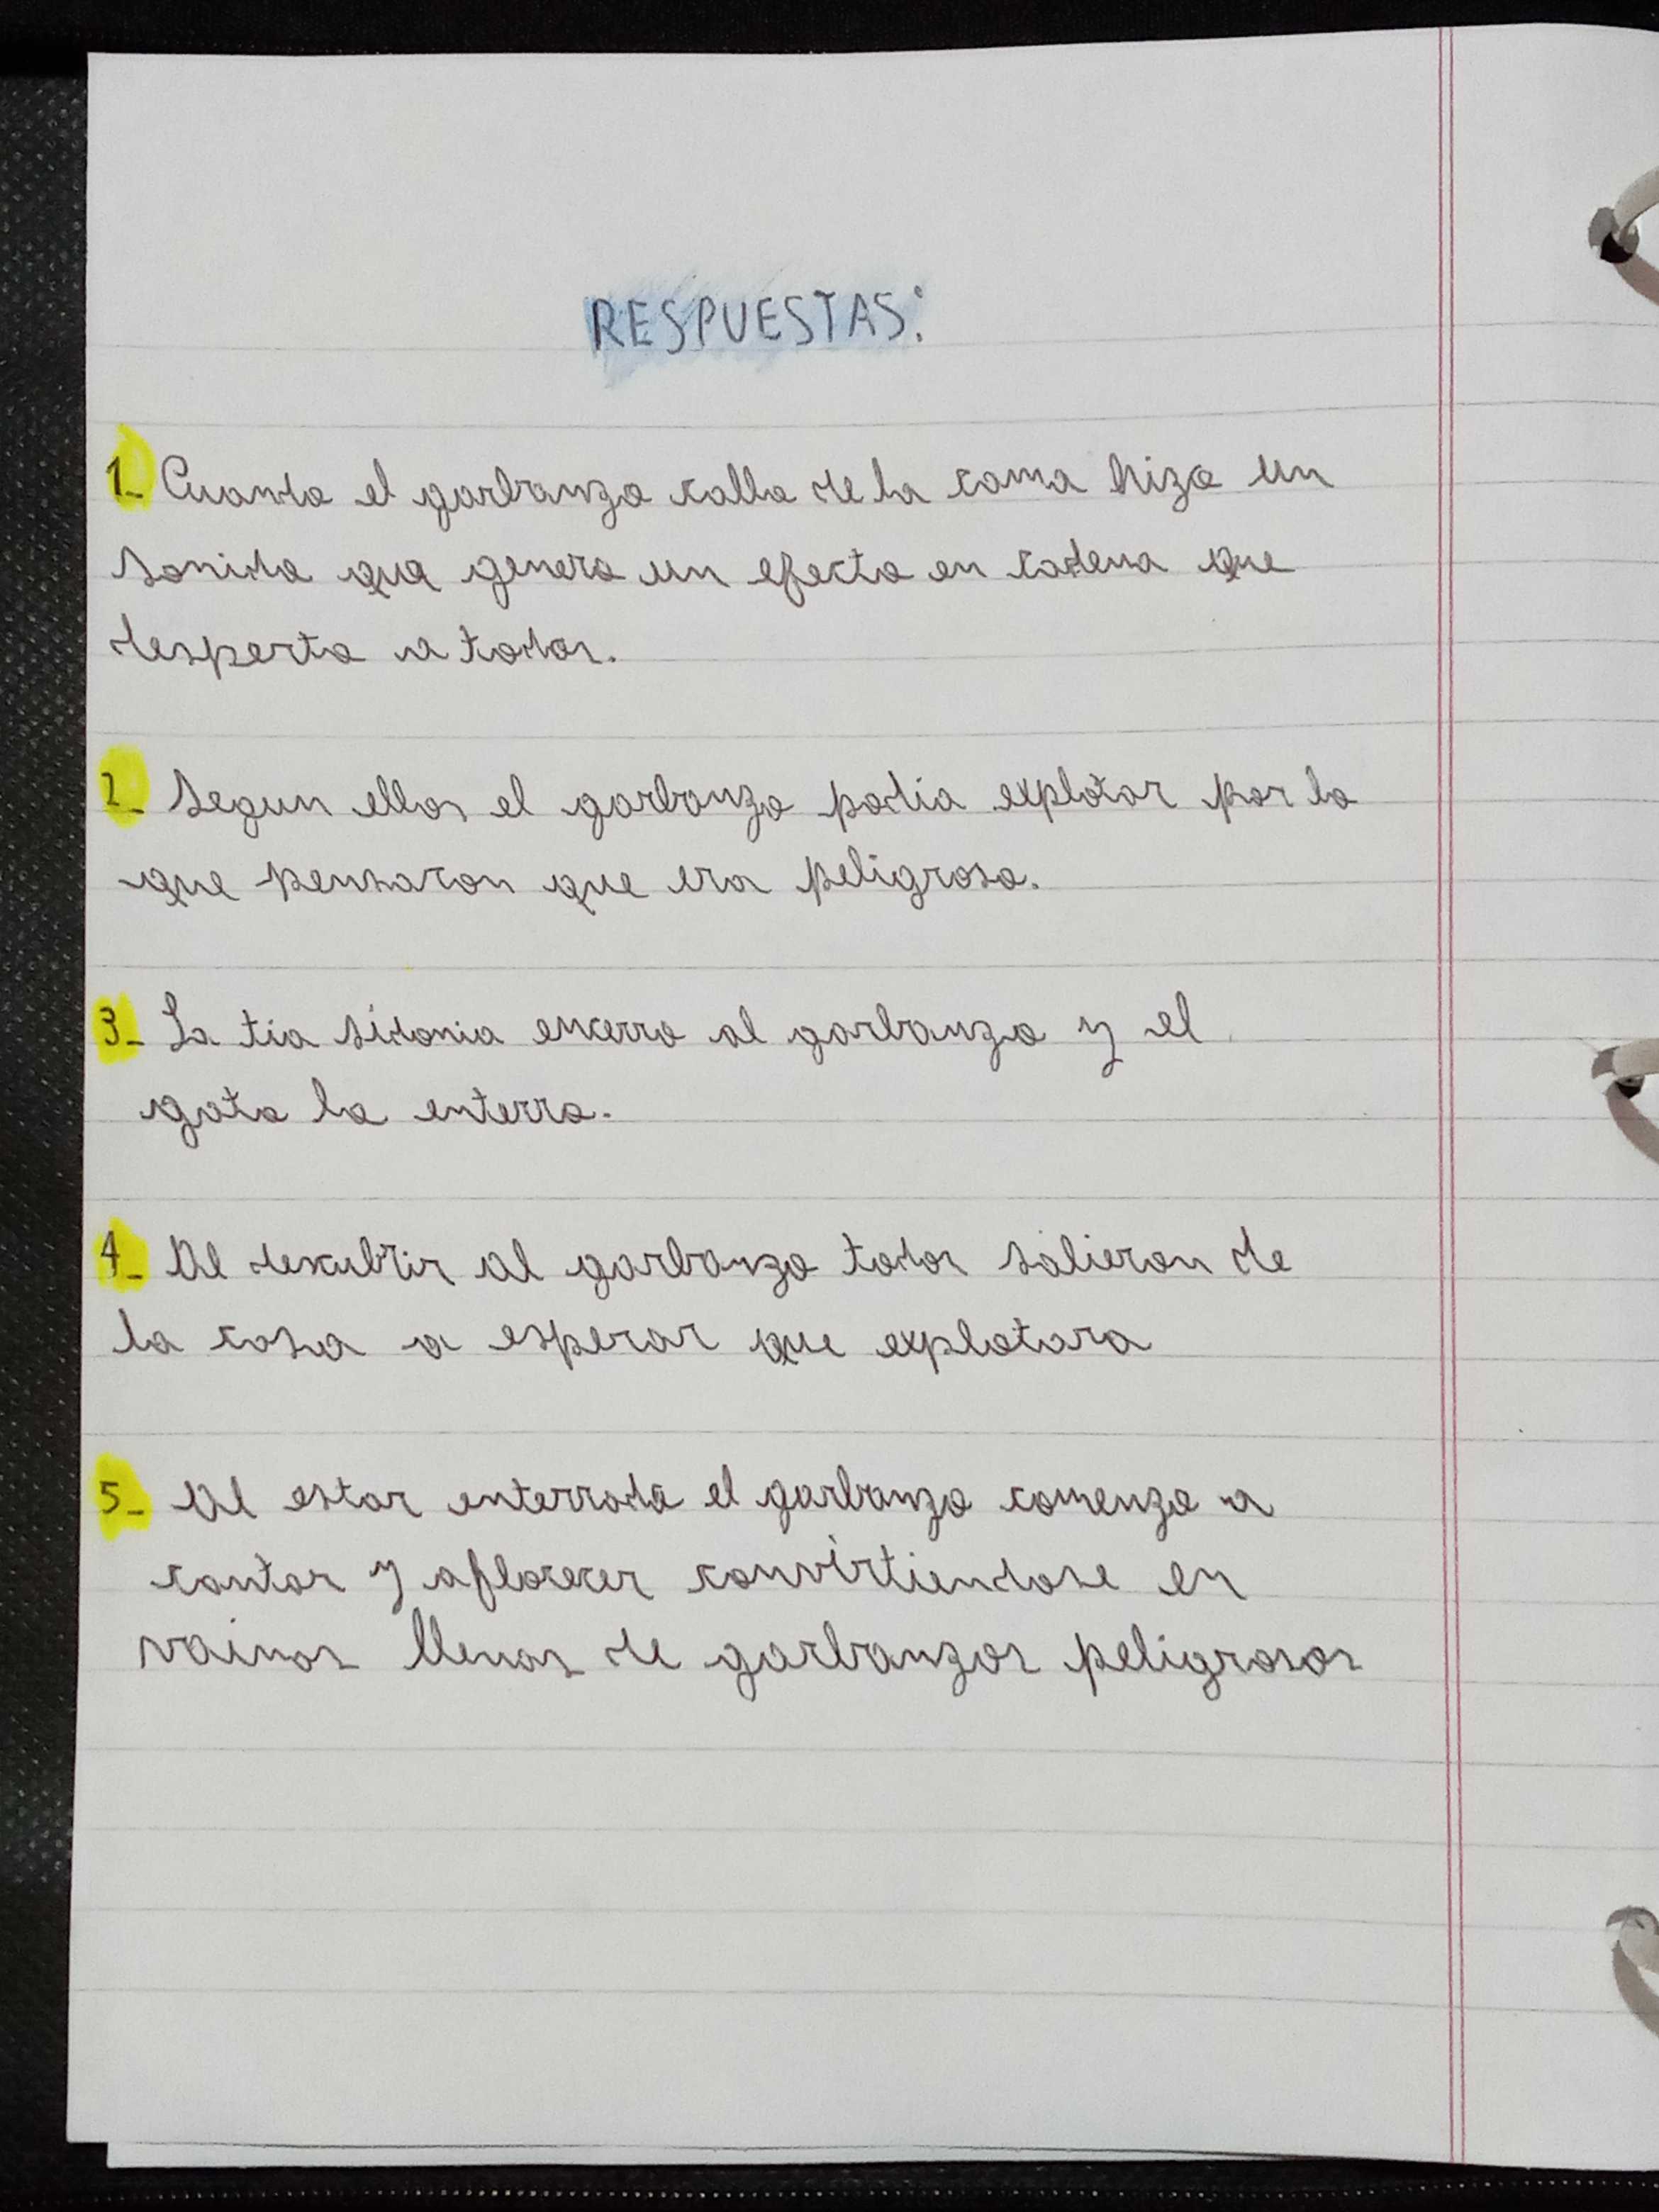 RESPUESTAS:
1_ Cuando el garbanzo callo de la cama hizo un
sonido que genero un efecto en cadena que
desperto a todos.
2_ Segun ellos el garbanzo podia explotar por lo
que pensaron que era peligroso.
3_ La tia sidonia encerro al garbanzo y el
gato lo enterro.
4_ Al descubrir al garbanzo todos salieron de
la casa a esperar que explotara
5_ Al estar enterrado el garbanzo comenzo a
cantar y aflorecer convirtiendose en
vainas llenas de garbanzos peligrosos